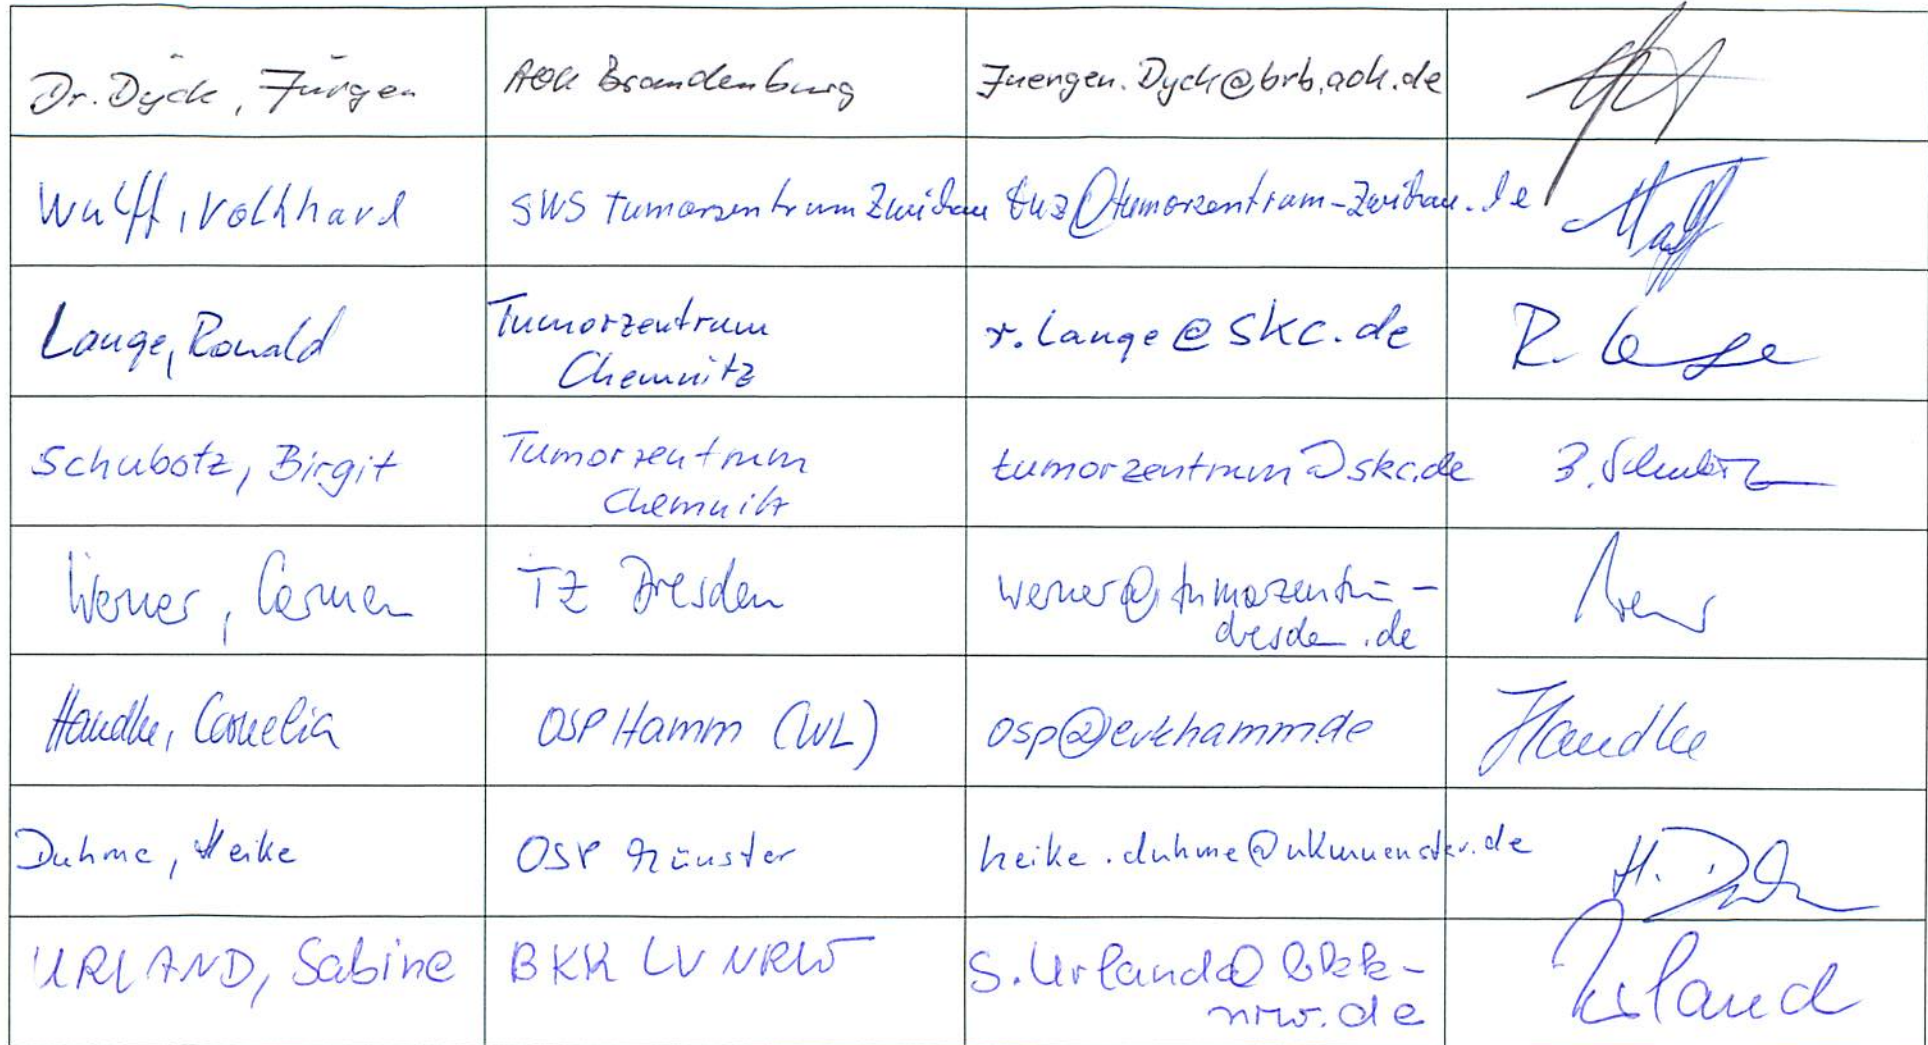 Dr. Dyck, Jürgen
AOK Brandenburg
Juergen.Dyck@brb.aok.de
Wulff, Volkhard
SWS Tumorzentrum Zwickau
tuz@tumorzentrum-Zwickau.de
Lange, Ronald
Tumorzentrum
Chemnitz
r.lange@skc.de
R. Lange
Schubotz, Birgit
Tumorzentrum
Chemnitz
tumorzentrum@skc.de
B. Schubotz
Werner, Carmen
TZ Dresden
werner@tumorzentrum-
dresden.de
Handke, Cornelia
OSP Hamm (WL)
osp@evkhamm.de
Handke
Duhme, Heike
OSP Münster
heike.duhme@ukmuenster.de
URLAND, Sabine
BKK LV NRW
S.Urland@bkk-
nrw.de
Urland